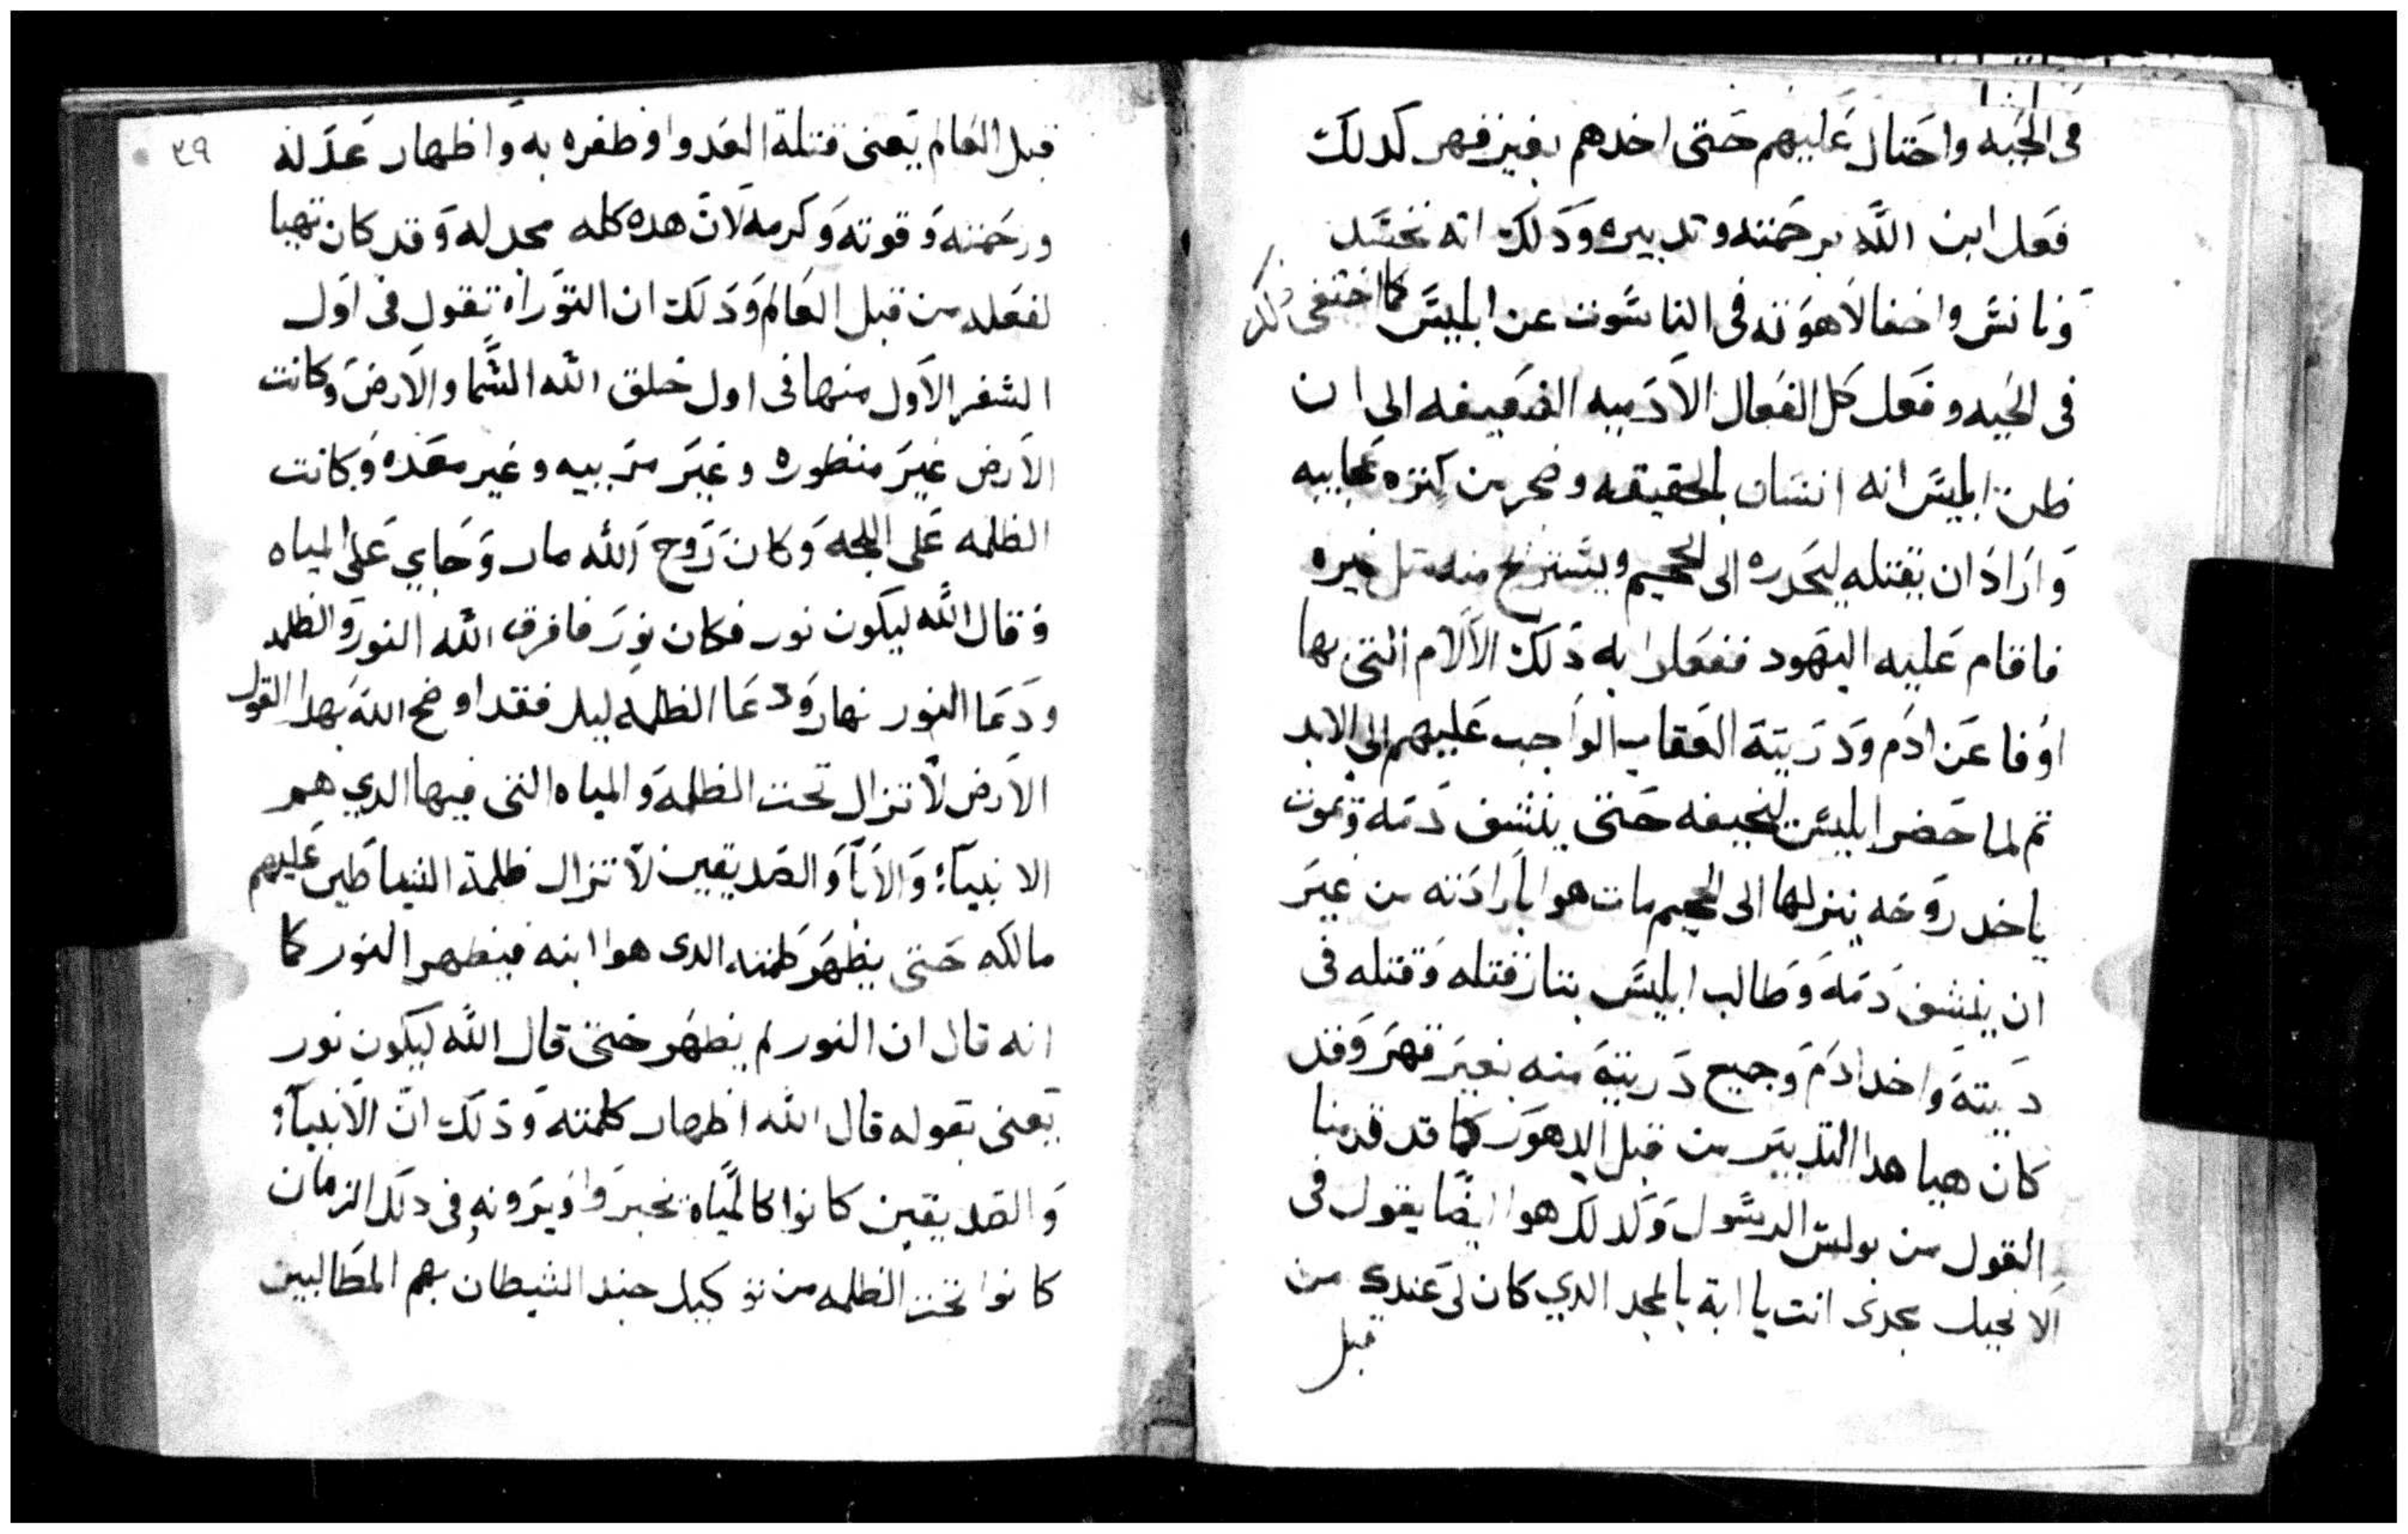 في الحيه واحتال عليهم حتى اخدهم بغير قهر كدلك
فعل ابن الله برحمته وتدبيره ودلك انه تجسد
وتانس واخفا لاهوته في الناسوت عن ابليس كما اختفى داك
في الحيه وفعل كل الفعال الادميه الضعيفه الى ان
ظن ابليس انه انسان بالحقيقه وضجر من كتره عجايبه
واراد ان يقتله ليحدره الى الجحيم ويستريح منه متل غيره
فاقام عليه اليهود ففعلوا به دلك الالام التي بها
اوفا عن ادم ودريته العقاب الواجب عليهم الى الابد
تم لما حضر ابليس ليخيفه حتى ينشف دمه ويموت
ياخد روحه ينزلها الى الجحيم مات هوا بارادته من غير
ان ينشف دمه وطالب ابليس بتار قتله وقتله في
ديته واخد ادم وجميع دريته منه بغير قهر وقد
كان هيا هدا التدبير من قبل الدهور كما قد قدمنا
القول من بولس الرسول وكدلك هوا ايضا يقول في
الانجيل مجدني انت يا ابة بالمجد الدي كان لي عندك من
قبل
٣٩
قبل العالم يعني قتلة العدوا وظفره به واظهار عدله
ورحمته وقوته وكرمه لان هده كله مجد له وقد كان تهيا
لفعله من قبل العالم ودلك ان التوراه تقول في اول
السفر الاول منها في اول خلق الله السما والارض وكانت
الارض غير منظوره وغير مرييه وغير معده وكانت
الظلمه على اللجه وكان روح الله مار وجاي على المياه
وقال الله ليكون نور فكان نور فافرق الله النور والظلمه
ودعا النور نهار ودعا الظلمه ليل فقد اوضح الله بهدا القول
الارض لا تزال تحت الظلمه والمياه التي فيها الدي هم
الانبيآء والابآ والصديقين لا تزال ظلمة الشياطين عليهم
مالكه حتى يظهر كلمته الدى هوا ابنه فيظهر النور كما
انه قال ان النور لم يظهر حتى قال الله ليكون نور
يعني بقوله قال الله اظهار كلمته ودلك ان الانبيآء
والصديقين كانوا كالمياه تخبر وا ويرونه في دلك الزمان
كانوا تحت الظلمه من توكيل جند الشيطان بهم المطالبين